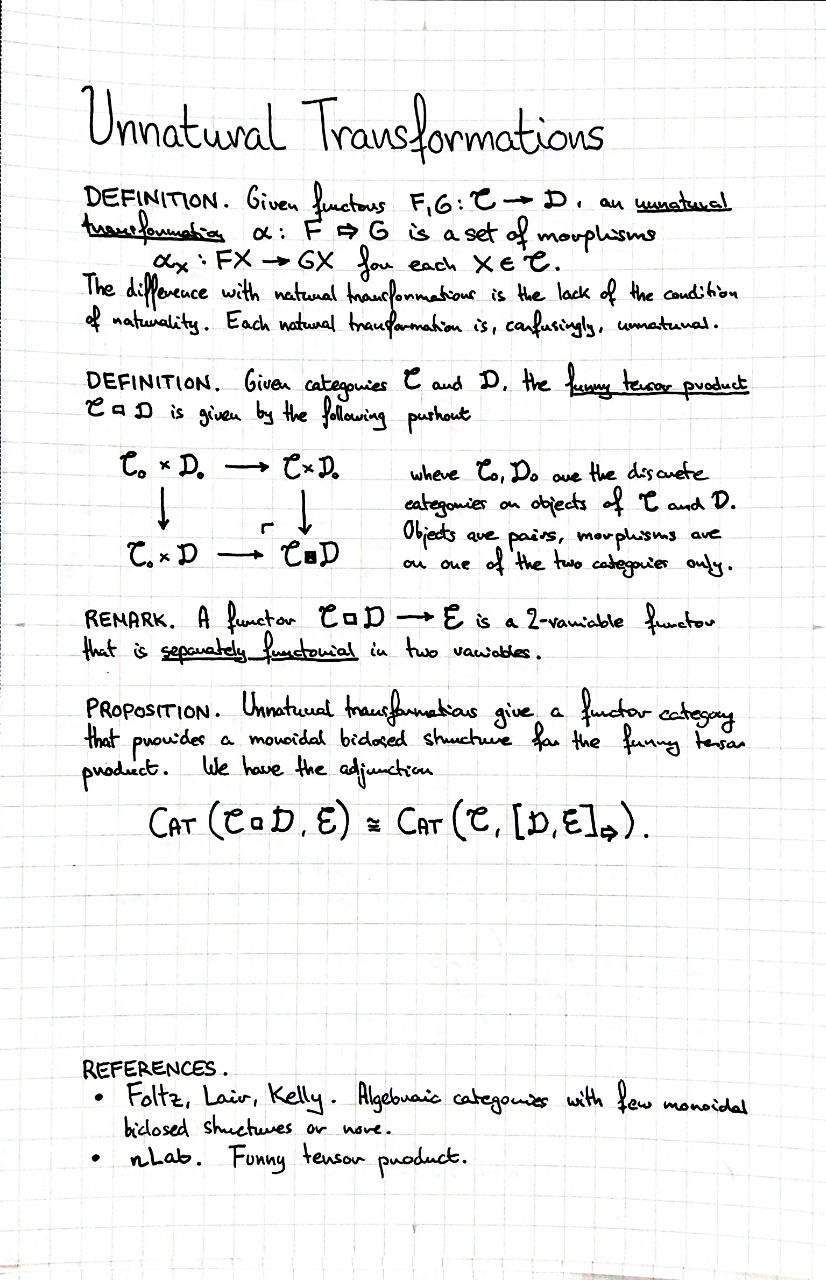 Unnatural Transformations
DEFINITION. Given functors F,G: C → D, an unnatural
transformation α: F ⇨ G is a set of morphisms
αx : FX → GX for each X ∈ C.
The difference with natural transformations is the lack of the condition
of naturality. Each natural transformation is, confusingly, unnatural.
DEFINITION. Given categories C and D, the funny tensor product
C □ D is given by the following pushout
C₀ × D₀ → C × D₀
↓ ⌜ ↓
C₀ × D → C □ D
where C₀, D₀ are the discrete
categories on objects of C and D.
Objects are pairs, morphisms are
on one of the two categories only.
REMARK. A functor C □ D → E is a 2-variable functor
that is separately functorial in two variables.
PROPOSITION. Unnatural transformations give a functor category
that provides a monoidal biclosed structure for the funny tensor
product. We have the adjunction
CAT (C □ D, E) ≅ CAT (C, [D,E]⇨).
REFERENCES.
• Foltz, Lair, Kelly. Algebraic categories with few monoidal
biclosed structures or none.
• nLab. Funny tensor product.